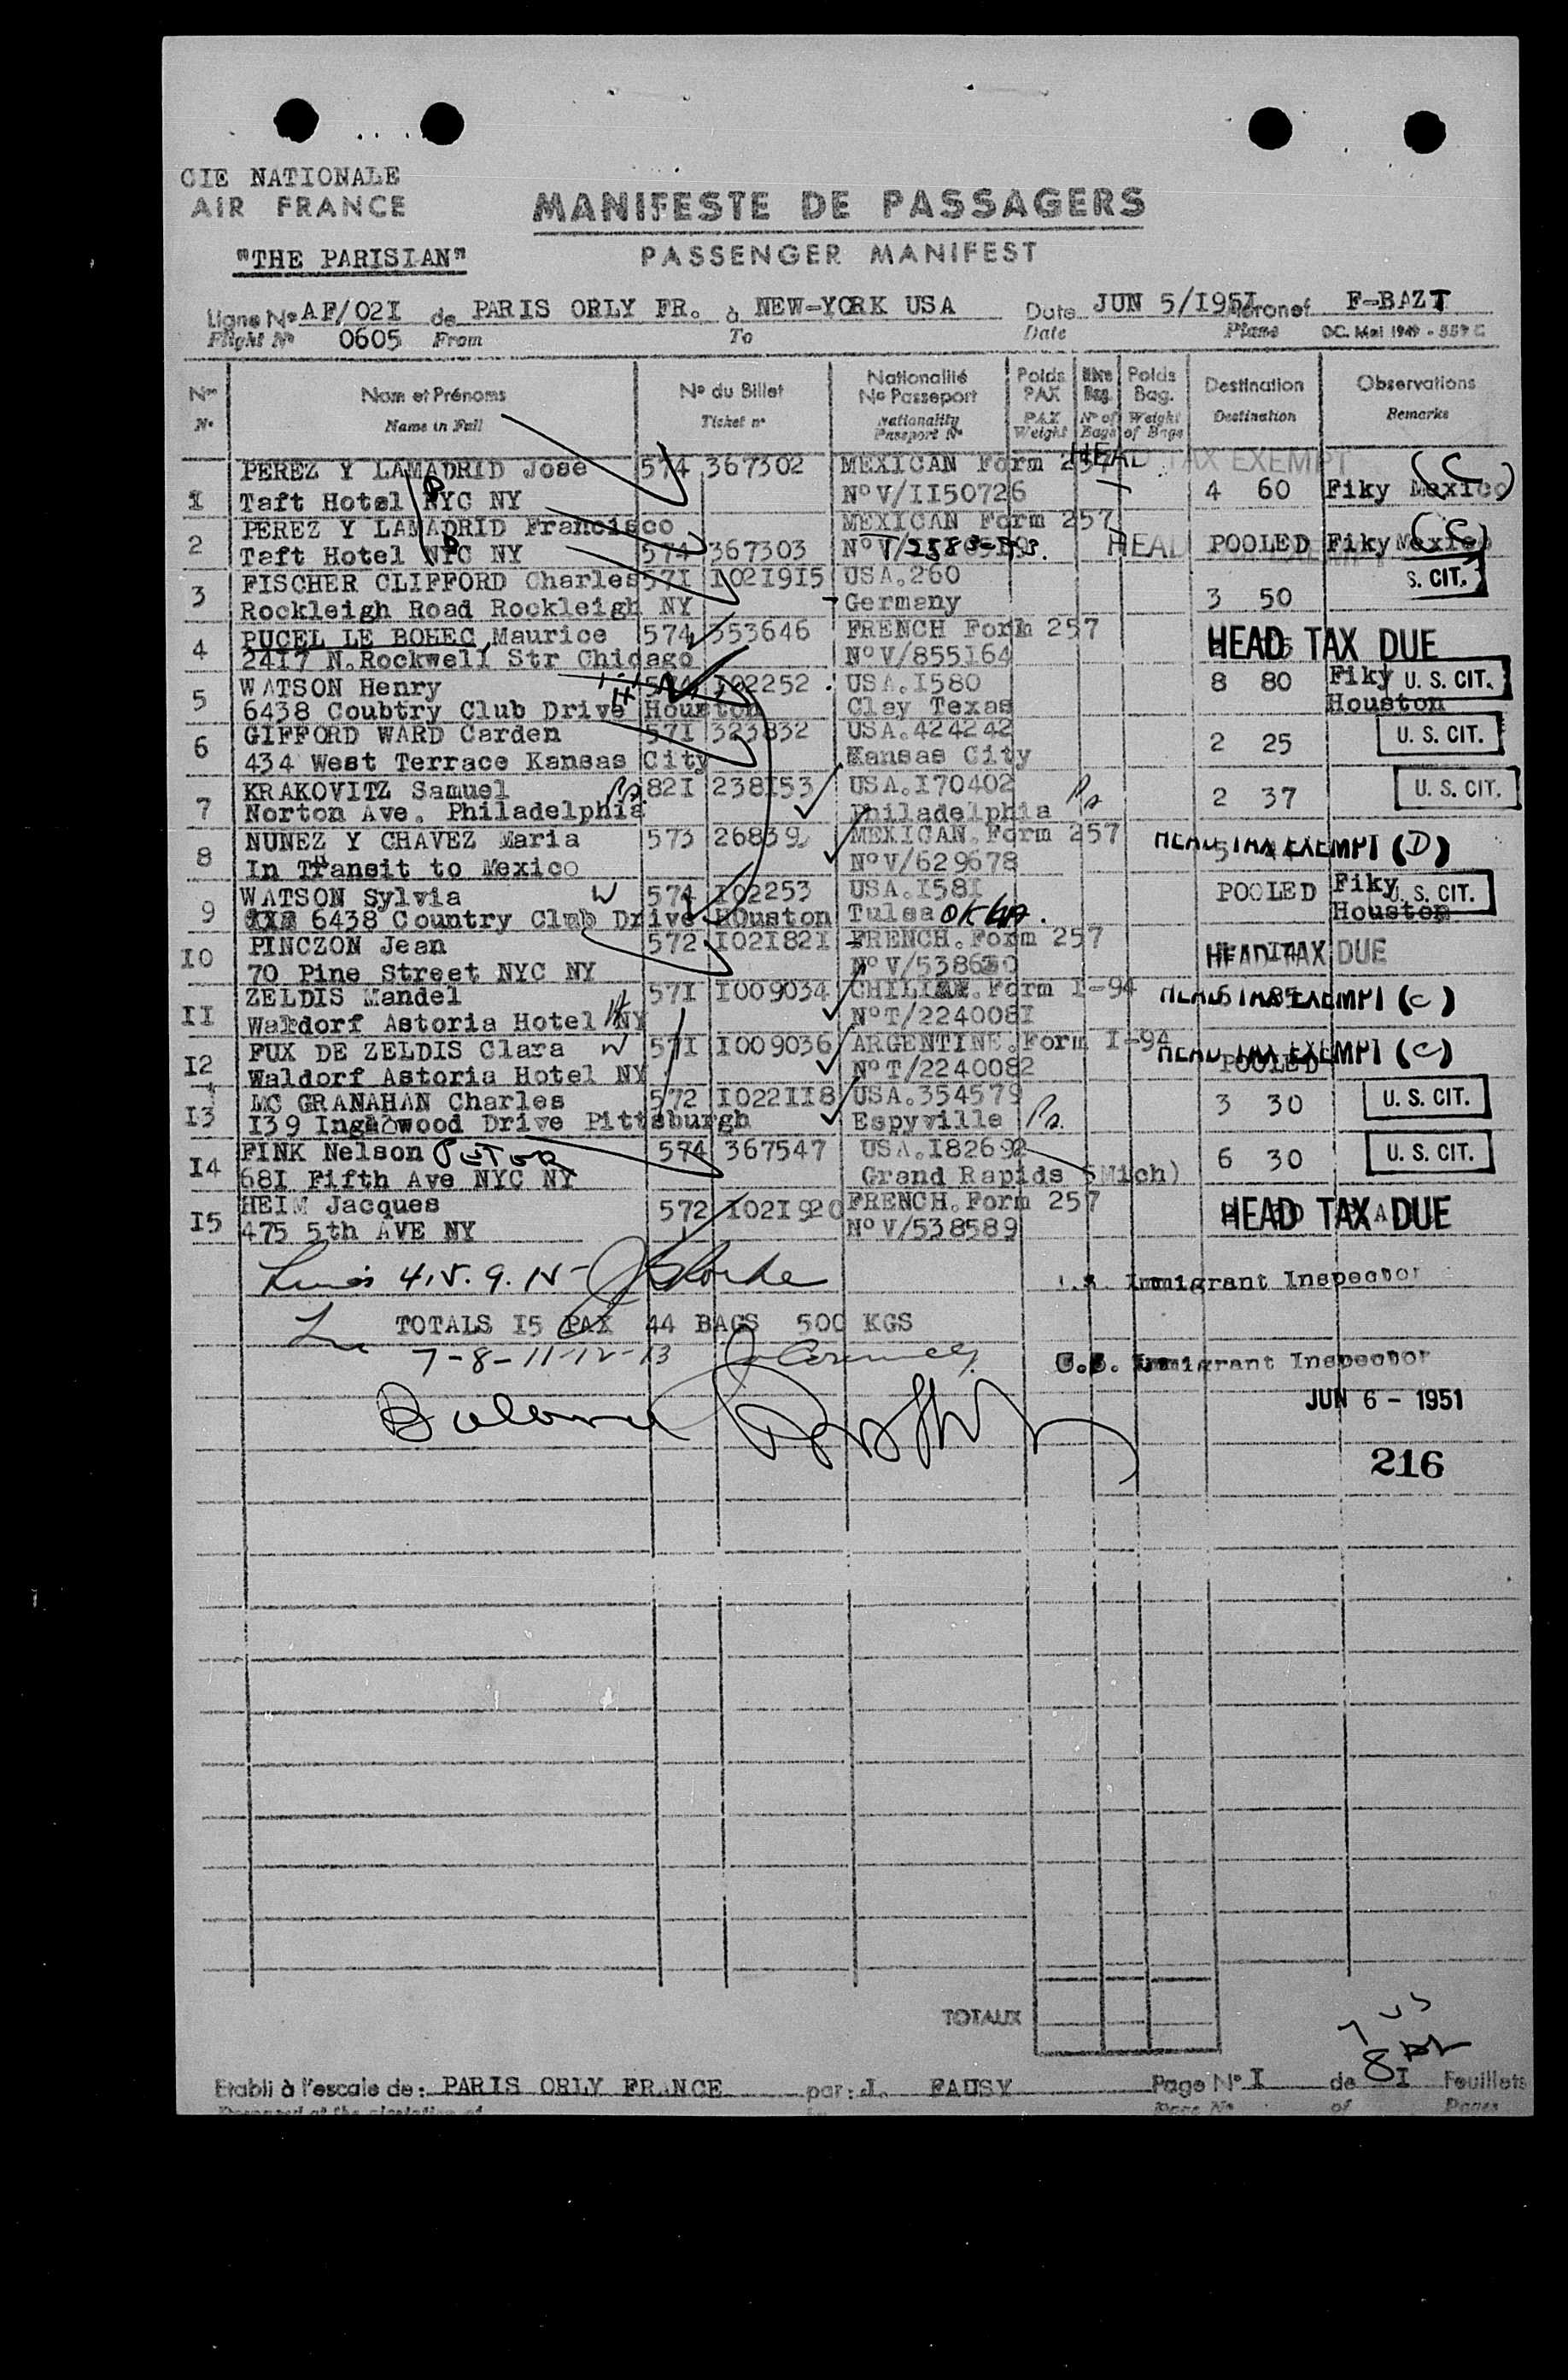 CIE NATIONALE
AIR FRANCE
MANIFESTE DE PASSAGERS
"THE PARISIAN"
PASSENGER MANIFEST
Ligne No AF/02I de PARIS ORLY FR. à NEW-YORK USA Date JUN 5/I95I Aéronef F-BAZT
Flight No 0605 From To Date Plane OC. Mai 1949 - 559 C
Nos Nom et Prénoms No du Billet Nationalité No Passeport Poids PAX Nbre Bag. Poids Bag. Destination Observations
No Name in Full Ticket no Nationality Passport No PAX Weight No of Bags Weight of Bags Destination Remarks
PEREZ Y LAMADRID José 574 367302 MEXICAN Form 257 HEAD TAX EXEMPT
1 Taft Hotel NYC NY No V/II50726 4 60 Fiky Mexico (C)
PEREZ Y LAMADRID Francisco MEXICAN Form 257
2 Taft Hotel NYC NY 574 367303 No V/ HEAD POOLED Fiky Mexico (C)
3 FISCHER CLIFFORD Charles 57I I02I9I5 USA.260 S. CIT.
Rockleigh Road Rockleigh NY Germany 3 50
4 PUCEL LE BOHEC Maurice 574 353646 FRENCH Form 257 HEAD TAX DUE
24I7 N.Rockwell Str Chicago No V/855I64
5 WATSON Henry 574 I02252 USA.I580 8 80 Fiky U. S. CIT.
6438 Coubtry Club Drive Houston Clay Texas Houston
6 GIFFORD WARD Carden 57I 323832 USA.424242 2 25 U. S. CIT.
434 West Terrace Kansas City Kansas City
7 KRAKOVITZ Samuel 82I 238I53 USA.I70402 2 37 U. S. CIT.
Norton Ave. Philadelphia Philadelphia
8 NUNEZ Y CHAVEZ Maria 573 26839 MEXICAN.Form 257 HEAD TAX EXEMPT (D)
In Transit to Mexico No V/629678
9 WATSON Sylvia W 574 I02253 USA.I58I POOLED Fiky U. S. CIT.
6438 Country Club Drive Houston Tulsa OKLA. Houston
I0 PINCZON Jean 572 I02I82I FRENCH.Form 257 HEAD TAX DUE
70 Pine Street NYC NY No V/538630
II ZELDIS Mandel 57I I009034 CHILIAN.Form I-94 HEAD TAX EXEMPT (C)
Waldorf Astoria Hotel NY No T/224008I
I2 FUX DE ZELDIS Clara W 57I I009036 ARGENTINE.Form I-94 HEAD TAX EXEMPT (C)
Waldorf Astoria Hotel NY No T/2240082 POOLED
I3 MC GRANAHAN Charles 572 I022II8 USA.354579 3 30 U. S. CIT.
I39 Inglewood Drive Pittsburgh Espyville Pa.
I4 FINK Nelson PETER 574 367547 USA.I82692 6 30 U. S. CIT.
68I Fifth Ave NYC NY Grand Rapids (Mich)
I5 HEIM Jacques 572 I02I920 FRENCH.Form 257 HEAD TAX DUE
475 5th AVE NY No V/538589
Immigrant Inspector
TOTALS I5 PAX 44 BAGS 500 KGS
7-8-11-12-13 U.S. Immigrant Inspector
JUN 6 - 1951
216
TOTAUX
Etabli à l'escale de: PARIS ORLY FRANCE par: J. FAUSY Page No I de I Feuillets